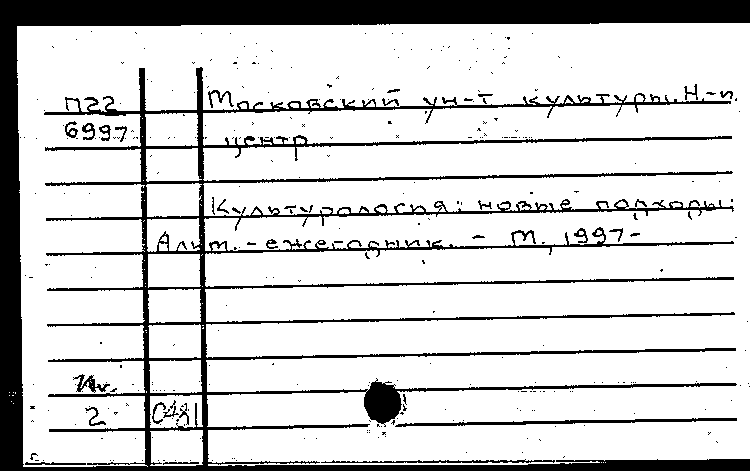 П22 Московский ун-т культуры. Н.-и.
6997 центр
Культурология: новые подходы:
Альм. - ежегодник. - М., 1997-
2 0481